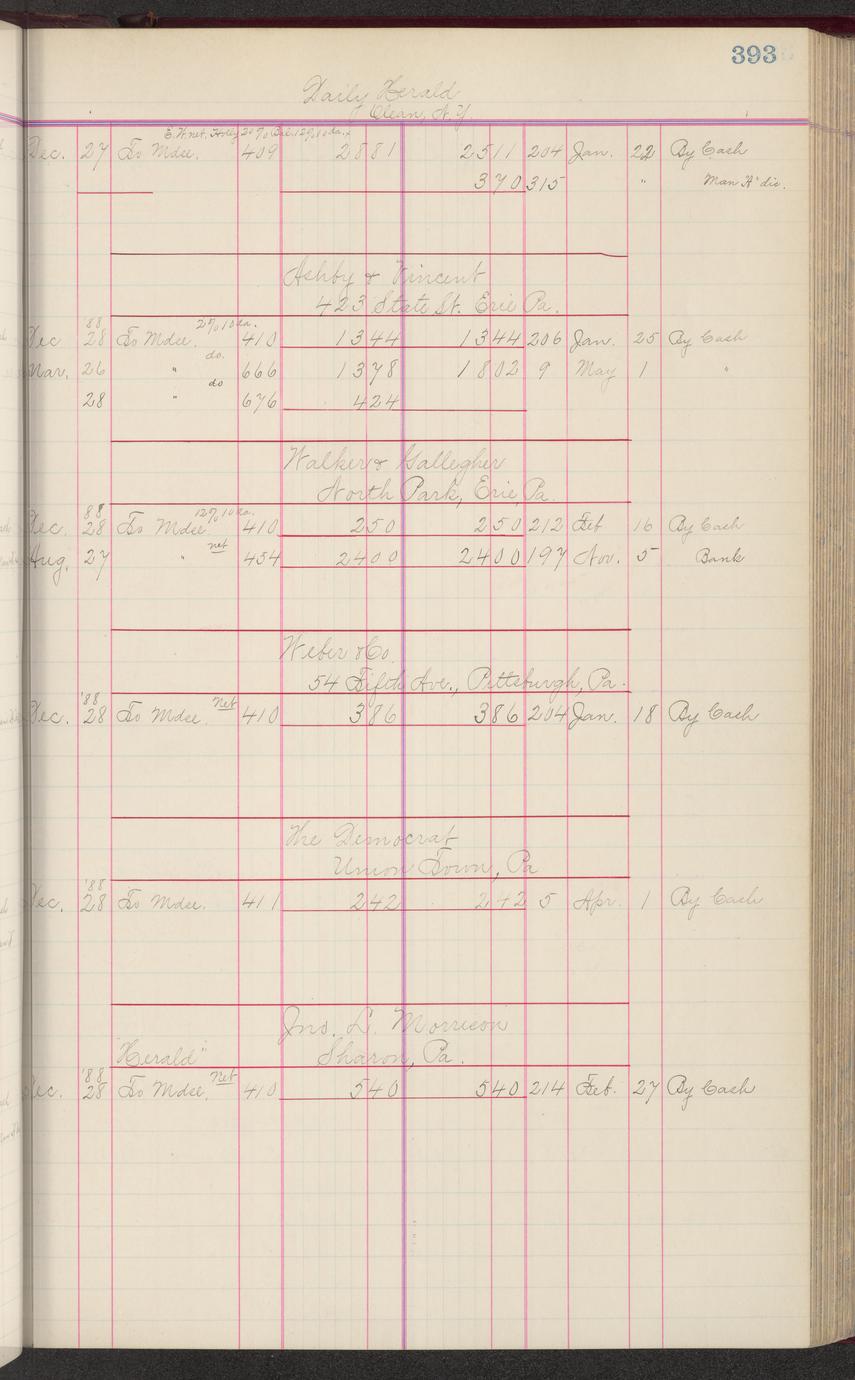 393
Daily Herald
Olean, N.Y.
E.W. net, Holly 20% Bal. 12% 10 da.
Dec. 27 To Mdse. 409 2881 2511 204 Jan. 22 By Cash
370 315 " Man'f'" dis.
Ashby & Vincent
423 State St. Erie Pa.
'88 2% 10 da.
Dec 28 To Mdse. 410 1344 1344 206 Jan. 25 By Cash
do.
Mar. 26 " 666 1378 1802 9 May 1 "
do
28 " 676 424
Walker & Gallegher
North Park, Erie, Pa.
88 12% 10 da.
Dec. 28 To Mdse 410 250 250 212 Feb 16 By Cash
net
Aug. 27 " 454 2400 2400 197 Nov. 5 Bank
Weber & Co.
54 Fifth Ave., Pittsburgh, Pa.
'88 Net
Dec. 28 To Mdse 410 386 386 204 Jan. 18 By Cash
The Democrat
Union Town, Pa
'88
Dec. 28 To Mdse. 411 242 242 5 Apr. 1 By Cash
Jno. L. Morrison
"Herald" Sharon, Pa.
'88 Net
Dec. 28 To Mdse. 410 540 540 214 Feb. 27 By Cash